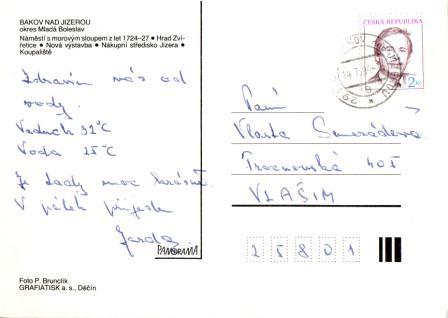 BAKOV NAD JIZEROU
okres Mladá Boleslav
Náměstí s morovým sloupem z let 1724–27 • Hrad Zví-
řetice • Nová výstavba • Nákupní středisko Jizera •
Koupaliště
Zdravím vás od
vody.
Vzduch 32°C
Voda 25°C
Je tady moc krásně.
V pátek přijedu
Jarda
PANORAMA
Foto P. Brunclík
GRAFIATISK a. s., Děčín
ČESKÁ REPUBLIKA
2 Kč
Paní
Vlasta
Trocnovská 405
VLAŠIM
25801